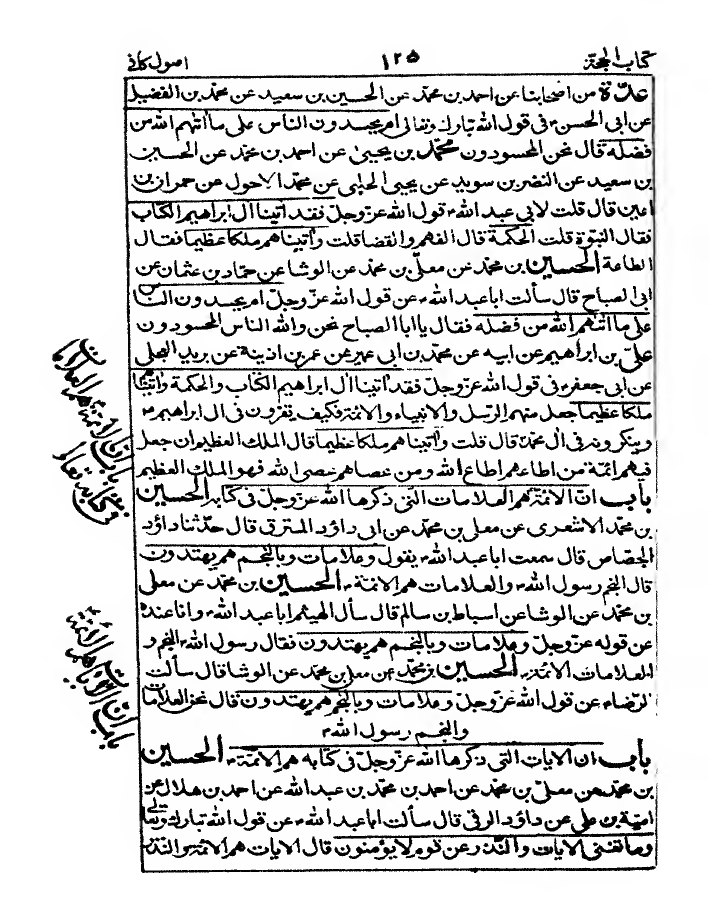 كتاب الحجة ١٢٥ اصول كافى
عدّة من اصحابنا عن احمد بن محمّد عن الحسين بن سعيد عن محمّد بن الفضيل
عن ابى الحسن ع فى قول الله تبارك وتعالى ام يحسدون الناس على ما اتٰهم الله من
فضله قال نحن المحسودون محمّد بن يحيىٰ عن احمد بن محمّد عن الحسين
بن سعيد عن النضر بن سويد عن يحيى الحلبى عن محمّد الاحول عن حمران بن
اعين قال قلت لابى عبد الله ع قول الله عزّ وجلّ فقد اتينا ال ابراهيم الكتاب
فقال النبوّة قلت الحكمة قال الفهم والقضا قلت واتيناهم ملكا عظيما فقال
الطاعة الحسين بن محمّد عن معلّى بن محمّد عن الوشا عن حمّاد بن عثمان عن
ابى الصباح قال سألت ابا عبد الله ع عن قول الله عزّ وجلّ ام يحسدون الناس
على ما اتٰهم الله من فضله فقال يا ابا الصباح نحن والله الناس المحسودون
علىّ بن ابراهيم عن ابيه عن محمّد بن ابى عمير عن عمر بن اذينة عن بريد العجلى
عن ابى جعفر ع فى قول الله عزّ وجلّ فقد اتينا ال ابراهيم الكتاب والحكمة واتيناهم
ملكا عظيما جعل منهم الرسل والانبياء والائمة فكيف يقرّون فى ال ابراهيم ع
وينكرونه فى ال محمّد قال قلت واتيناهم ملكا عظيما قال الملك العظيم ان جعل
فيهم ائمّة من اطاعهم اطاع الله ومن عصاهم عصى الله فهو الملك العظيم
باب انّ الائمّة هم العلامات التى ذكرها الله عزّ وجلّ فى كتابه الحسين
بن محمّد الاشعرى عن معلى بن محمّد عن ابى داؤد المسترق قال حدّثنا داؤد
الجصّاص قال سمعت ابا عبد الله ع يقول وعلامات وبالنجم هم يهتدون
قال النجم رسول الله ص والعلامات هم الائمّة ع الحسين بن محمّد عن معلى
بن محمّد عن الوشا عن اسباط بن سالم قال سأل الهيثم ابا عبد الله ع وانا عنده
عن قوله عزّ وجلّ وعلامات وبالنجم هم يهتدون فقال رسول الله ص النجم و
العلامات الائمّة ع الحسين بن محمّد عن معلى بن محمّد عن الوشا قال سألت
الرضا ع عن قول الله عزّ وجلّ وعلامات وبالنجم هم يهتدون قال نحن العلامات
والنجم رسول الله ص
باب ان الايات التى ذكرها الله عزّ وجلّ فى كتابه هم الائمّة ع الحسين
بن محمّد عن معلى بن محمّد عن احمد بن محمّد بن عبد الله عن احمد بن هلال عن
اميّة بن على عن داؤد الرقى قال سألت ابا عبد الله ع عن قول الله تبارك وتعالى
وما تغنى الايات والنّذر عن قوم لا يؤمنون قال الايات هم الائمّة والنذر
باب ان الائمّة هم العلامات
فى كتابه تعالى
باب ان الايات هم الائمّة